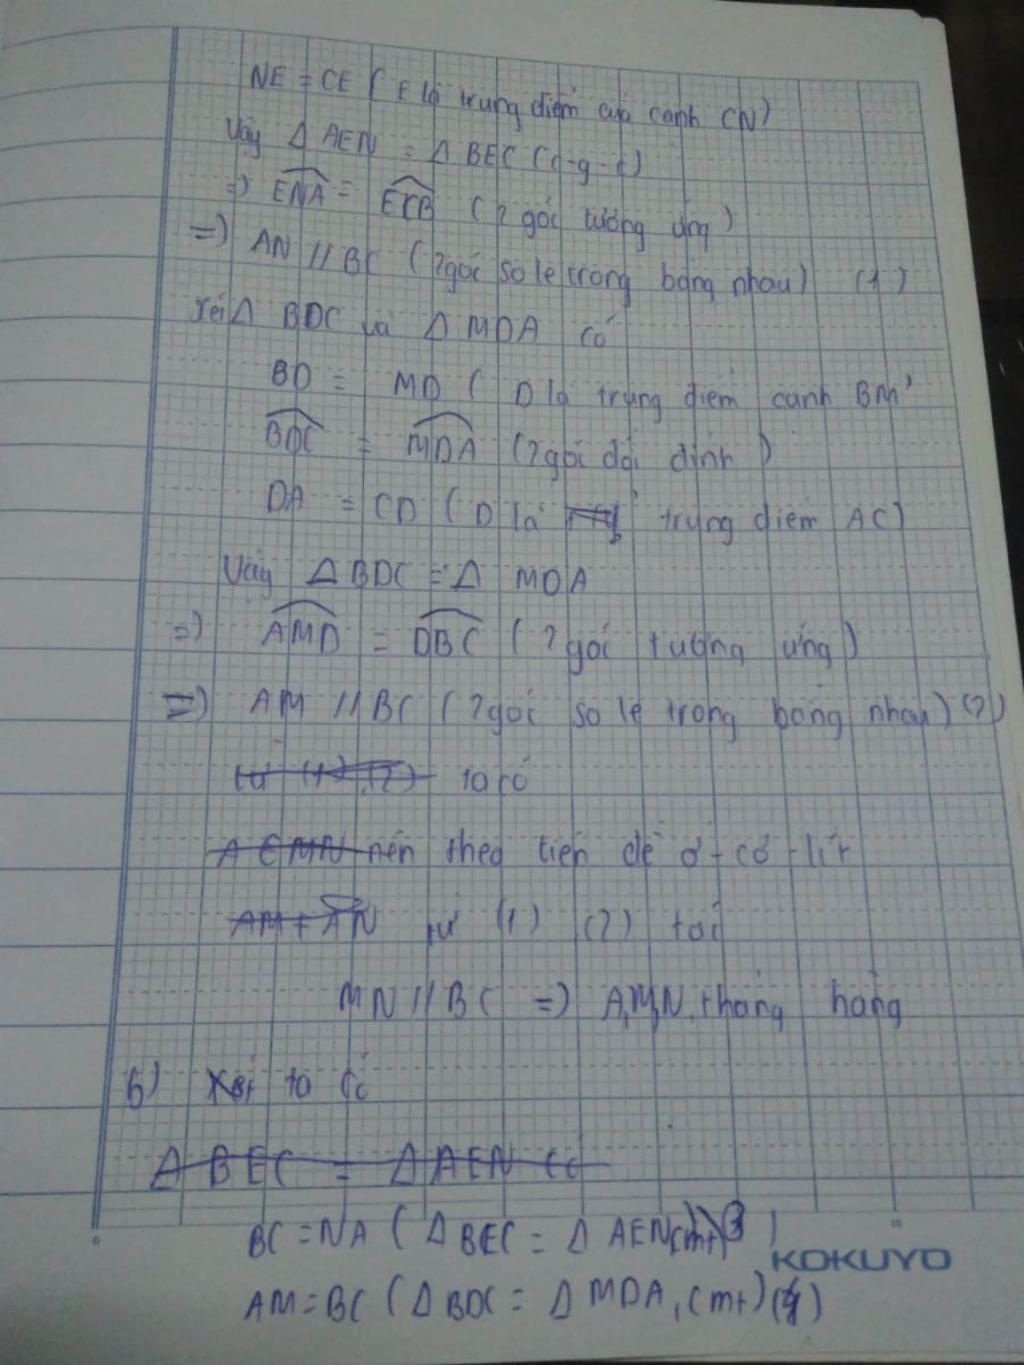 NE = CE ( E là trung điểm của cạnh CN)
Vậy Δ AEN = Δ BEC (c-g-c)
=) ENA = ECB ( 2 góc tương ứng )
=) AN // BC ( 2góc so le trong bằng nhau) (1)
Xét Δ BDC và Δ MDA có
BD = MD ( D là trung điểm cạnh BM)
BDC = MDA (2góc đối đỉnh )
DA = CD ( D là trung điểm AC)
Vậy Δ BDC = Δ MDA
=) AMD = DBC ( 2 góc tương ứng )
=) AM // BC ( 2góc so le trong bằng nhau) (2)
từ (1) (2) ta có
A C MN nên theo tiên đề ơ-cơ-lít
AM + AN từ (1) (2) ta có
MN // BC =) A,M,N thẳng hàng
b) Xét ta có
Δ BEC = Δ AEN có
BC = NA ( Δ BEC = Δ AEN(cmt) 3 )
KOKUYO
AM = BC ( Δ BDC = Δ MDA, (cmt) (4)